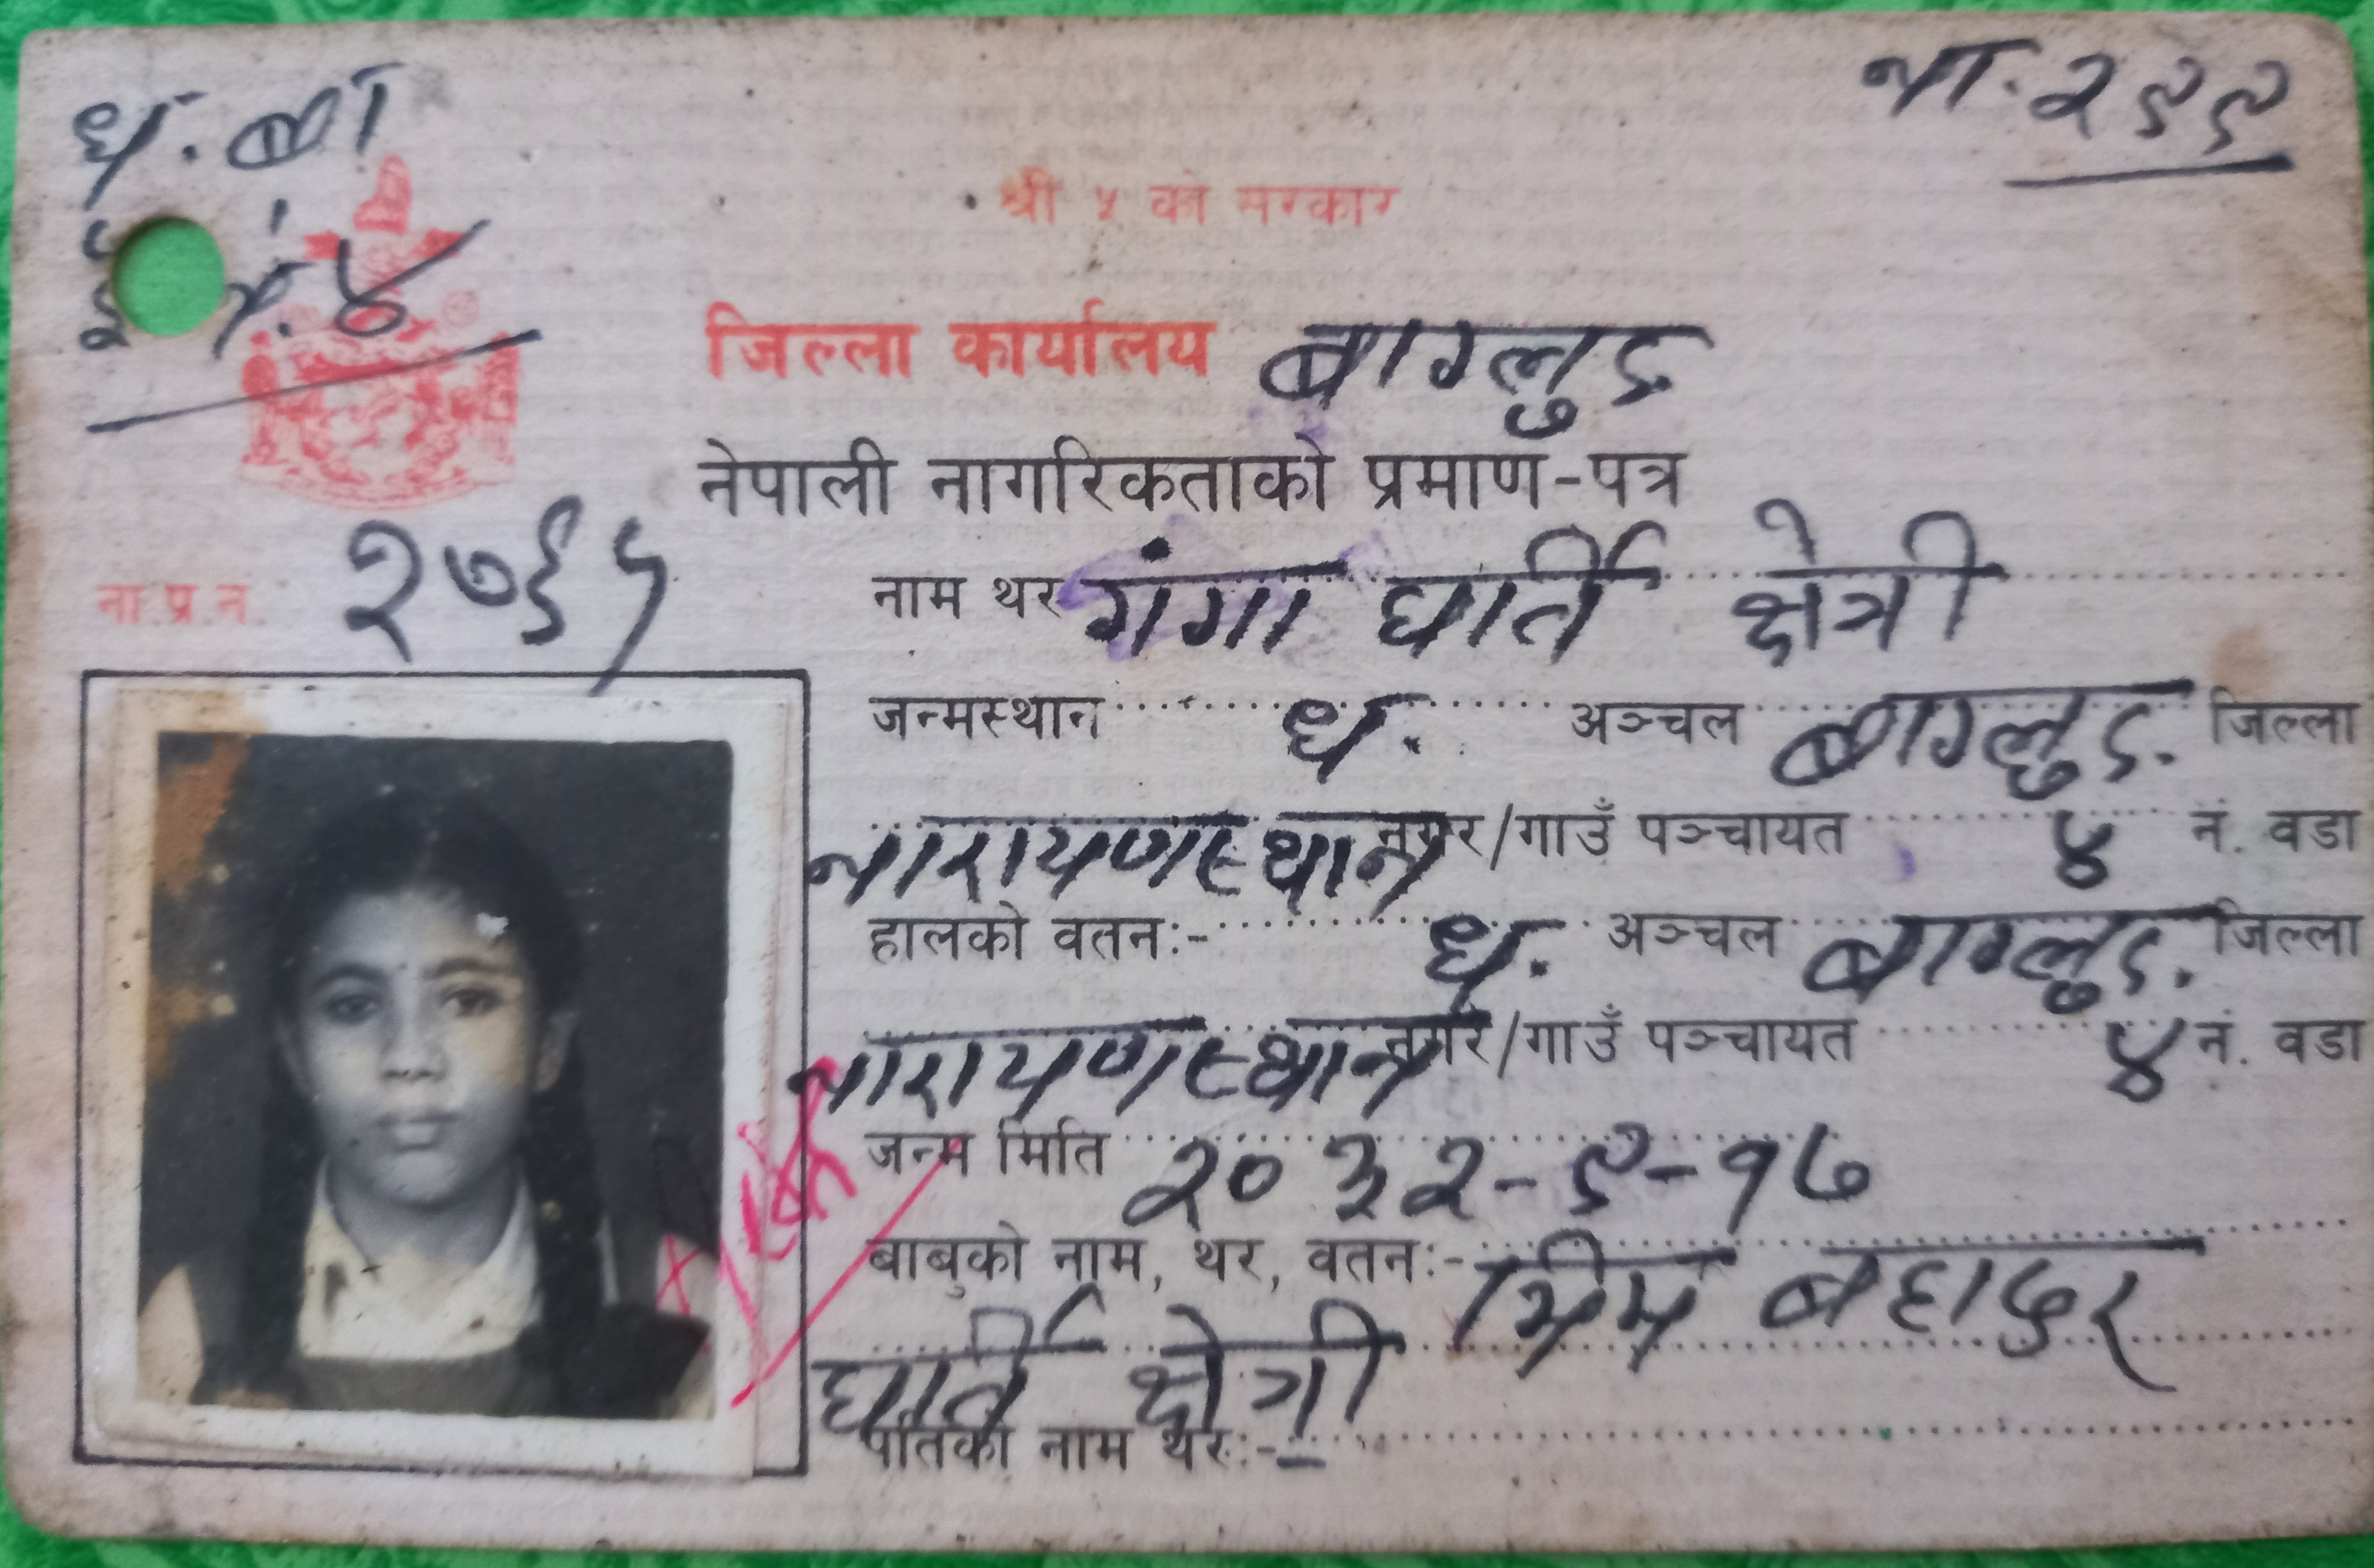 ध. बा
इ.
४
ना. २९९
श्री ५ को सरकार
जिल्ला कार्यालय बाग्लुङ
नेपाली नागरिकताको प्रमाण-पत्र
ना.प्र.न. २७६५
नाम थर गंगा घर्ति क्षेत्री
जन्मस्थान ध. अञ्चल बाग्लुङ. जिल्ला
नारायणस्थान नगर/गाउँ पञ्चायत ४ नं. वडा
हालको वतन:- ध. अञ्चल बाग्लुङ. जिल्ला
नारायणस्थान नगर/गाउँ पञ्चायत ४ नं. वडा
जन्म मिति २०३२-९-१७
बाबुको नाम, थर, वतन:- भिम बहादुर
घर्ति क्षेत्री
पतिको नाम थर:- -